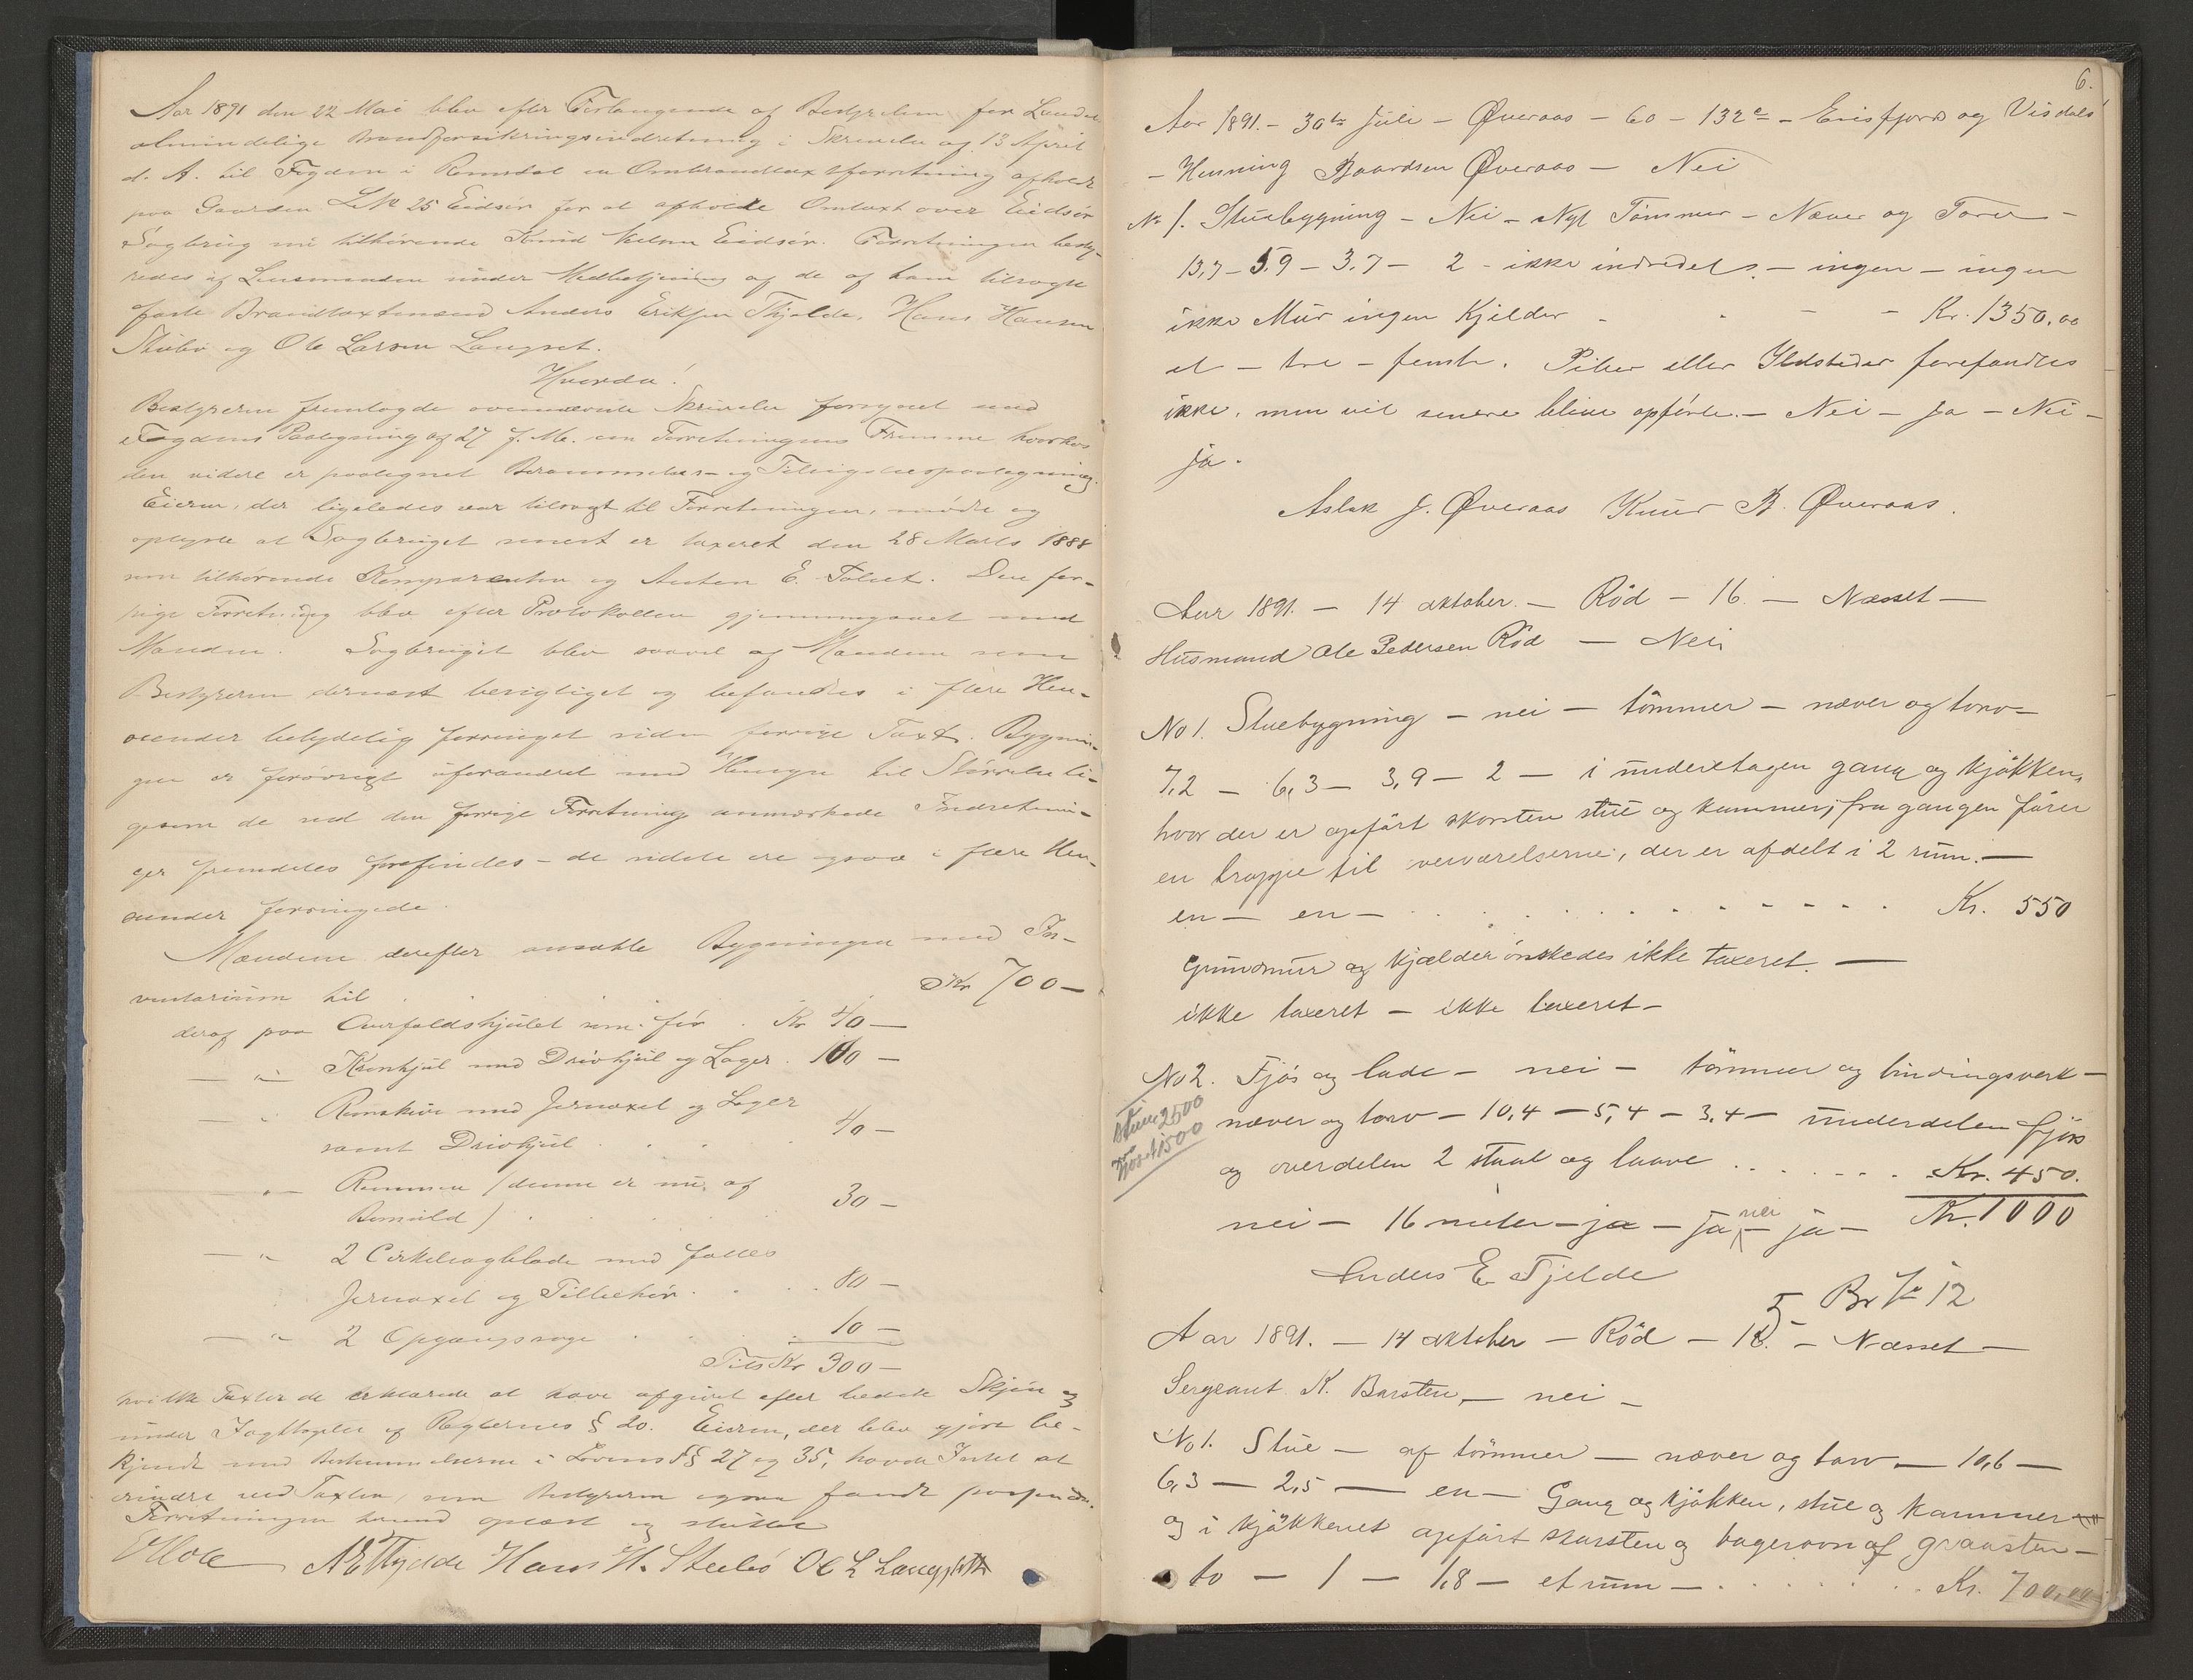 Aar 1891 den 22 Mai blev efter Forlangende af Bestyrelsen for Landets
almindelige Brandforsikringsindretning i Skrivelse af 13 April
d. A. til Fogden i Romsdal en Ombrandtaxtforretning afholdt
paa Gaarden LNo 25 Eidsør for at afholde Omtaxt over Eidsør
Sagbrug nu tilhørende Knud Nelsen Eidsør. Forretningen besty-
redes af Lensmanden under Medbetjening af de af ham tilsagte
faste Brandtaxtmænd Anders Eriksen Fjelde, Hans Hansen
Stubø og Ole Larsen Langset.
Hvorda!
Bestyreren fremlagde ovennævnte Skrivelse forsynet med
Fogdens Paategning af 27 f. M. om Forretningens Fremme hvorhos
den videre er paategnet Berammelses- og Tilsigelsespaategning.
Eieren, der ligeledes var tilsagt til Forretningen, mødte og
oplyste at Sagbruget senest er taxeret den 28 Marts 1888
som tilhørende Komparenten og Anton E. Toluet. Den for-
rige Forretning blev efter Protokollen gjennemgaaet med
Mændene. Sagbruget blev saavel af Mændene som
Bestyreren dernæst besigtiget og befandtes i flere Hen-
seender betydelig forringet siden forrige Taxt. Bygnin-
gen er forøvrigt uforandret med Hensyn til Størrelse li-
gesom de ved den forrige Forretning anmærkede Indretnin-
ger fremdeles forefindes - de sidste ere ogsaa i flere Hen-
seender forringede.
Mændene derefter ansatte Bygningen med In-
ventarium til . . . Kr 700 —
deraf paa Overfaldshjulet som før . Kr 40 —
— " — Kronhjul med Drivhjul og Lager . 100 —
— " Remskive med Jernaxel og Lager
samt Drivhjul . . . 40 —
" — Remmen (denne er nu af
Bomuld) . . . 30 —
— " 2 Cirkelsagblade med fælles
Jernaxel og Tilbehør . . . 80 —
— " 2 Opgangssage . . . 10 —
Tils Kr 300 —
hvilke Taxter de erklærede at have afgivet efter bedste Skjøn og
under Iagttagelse af Reglernes § 20. Eieren, der blev gjort be-
kjendt med Bestemmelserne i Lovens §§ 27 og 35, havde Intet at
erindre ved Taxten, som Bestyreren ogsaa fandt passende.
Forretningen hermed oplæst og sluttet
A E Fjelde Hans H. Stubø Ole L Langset
6.
Aar 1891. - 30te Juli - Øveraas - 60 - 132 c - Eirisfjord og Visdals
- Henning Baardsen Øveraas - Nei
No 1. Stuebygning - Nei - Nyt Tømmer - Næver og Torv -
13,7 - 5,9 - 3,7 - 2 - ikke indredet. - ingen - ingen
ikke Mur ingen Kjelder - - - - Kr. 1350,00
et - tre - femte. Piber eller Ildsteder forefandtes
ikke, men vil senere blive opførte. - Nei - Ja - Nei -
ja.
Aslak J. Øveraas Knud B. Øveraas.
Aar 1891. - 14 oktober. - Rød - 16. - Næsset -
Husmand Ole Pedersen Rød - Nei
No 1. Stuebygning - nei - tømmer - næver og torv -
7,2 - 6,3 - 3,9 - 2 - i underetagen gang og kjøkken,
hvor der er opført skorsten stue og kammer; fra gangen fører
en trappe til verværelserne, der er afdelt i 2 rum. —
en - en - . . . . . . . Kr. 550
Grundmur og kjælder ønskedes ikke taxeret. —
ikke taxeret - ikke taxeret -
No 2. Fjøs og lade - nei - tømmer og bindingsverk -
næver og torv - 10,4 - 5,4 - 3,4 - underdelen fjøs
og overdelen 2 staal og laave . . . . . . Kr. 450.
Stuen 2500
Fjøset 1500
nei - 16 meter - ja - ja - nei ja - Kr. 1000
Anders E Fjelde
Br No 12
Aar 1891. - 14 oktober - Rød - 15. - Næsset -
Sergeant K. Barsten, - nei -
No 1. Stue - af tømmer - næver og torv - 10,6 -
6,3 - 2,5 - en - Gang og kjøkken, stue og kammer
og i kjøkkenet opført skorsten og bagerovn af graasten -
to - 1 - 1,8 - et rum - . . . . . . Kr. 700,00